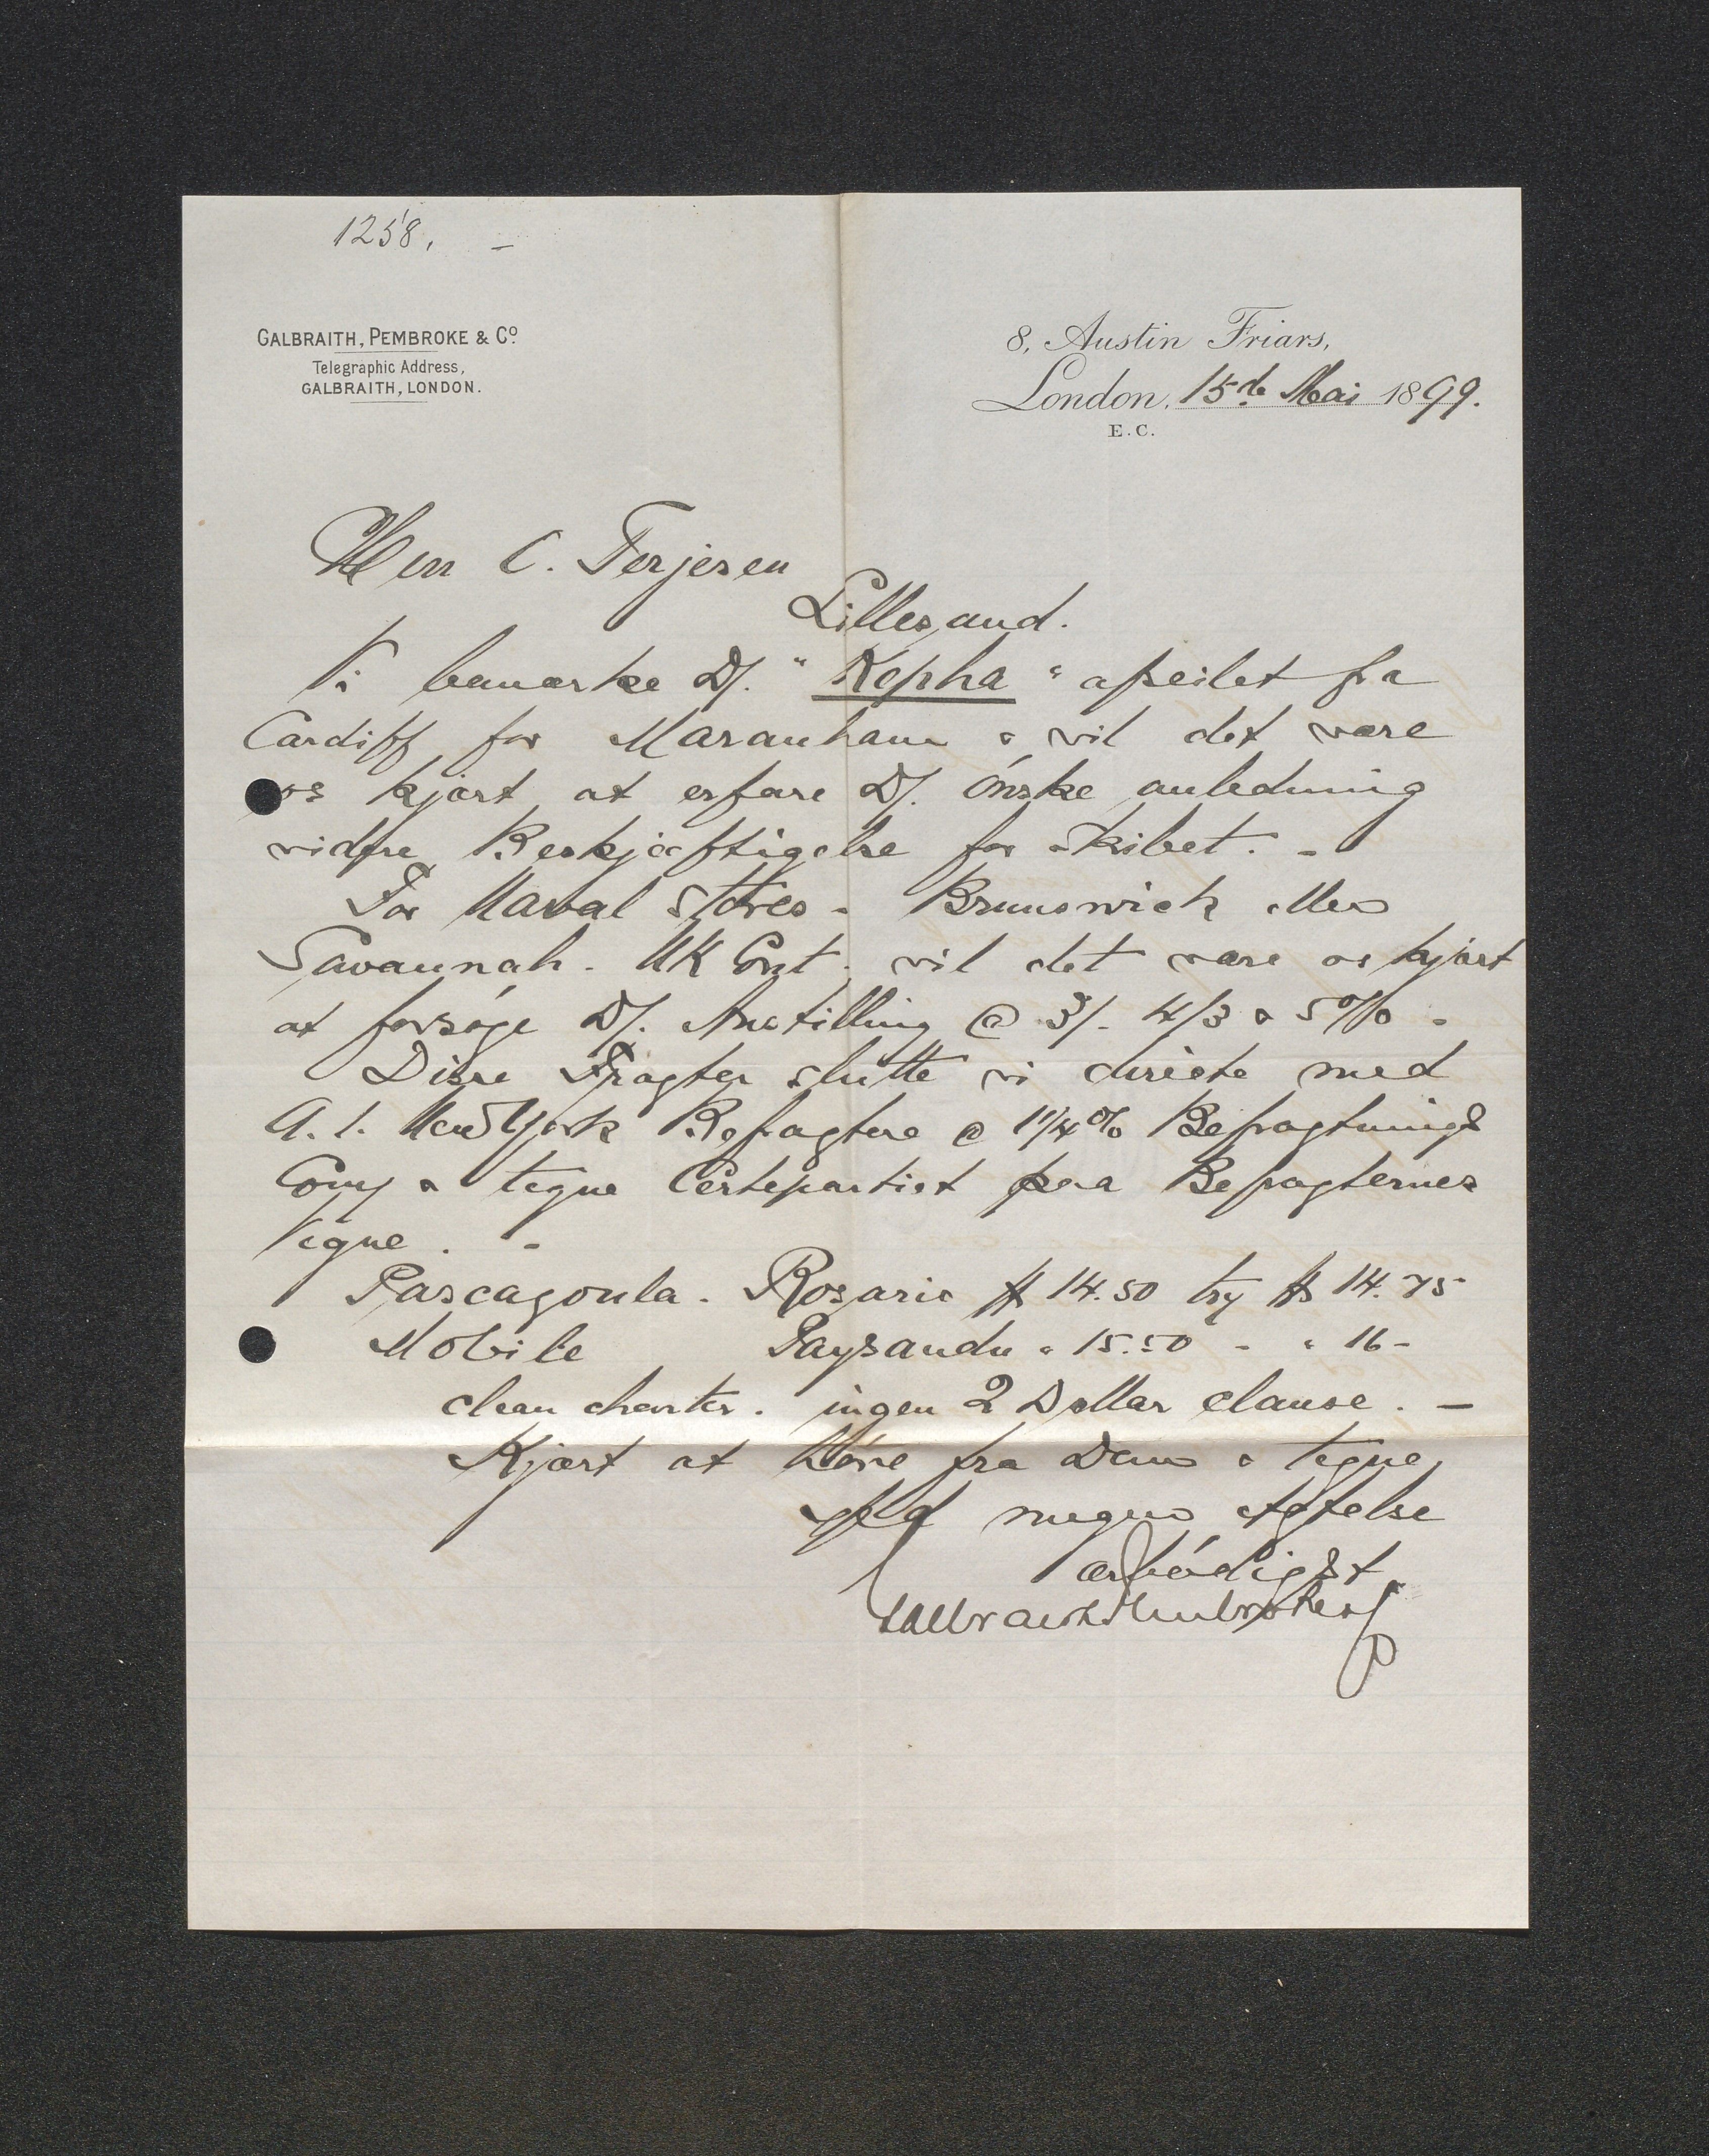 1258. -
GALBRAITH, PEMBROKE & Cº
Telegraphic Address,
GALBRAITH, LONDON.
8, Austin Friars,
London, 15de Mai 1899.
E.C.
Herr C. Terjesen
Lillesand.
Vi bemærke D/. "Kepha" afseilet fra
Cardiff for Maranham & vil det være
os kjært at erfare D/. Ønske anledning
vidre Beskjæftigelse for Skibet. -
For Naval Stores - Brunswick
Savannah. UK Cont. vil det være os kjært
at forsøge D/. Anstilling @ 3/- 4/3 & 5%. -
Disse Fragter slutte vi directe med
New York Befragtere @ 1 1/4% Befragtnings
Comn & tegne Certepartiet paa Befragternes
Vegne. -
Pascagoula. Rosario $ 14.50 try $ 14.75
Mobile Paysandu " 15.50 - " 16-
clean charter. ingen 2 Dollar clause. -
Kjært at høre fra Dem & tegne
megen Agtelse
ærbødigst
Galbraith Pembroke & Co